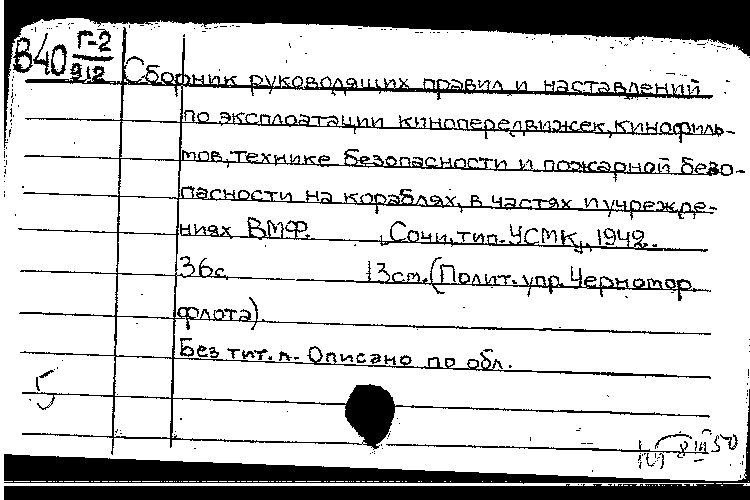 В40 Г-2
912
Сборник руководящих правил и наставлений
по эксплоатации кинопередвижек, кинофиль-
мов, технике безопасности и пожарной безо-
пасности на кораблях, в частях и учрежде-
ниях ВМФ. Сочи, тип. УСМК, 1942.
36с. 13см. (Полит. упр. Черномор.
флота).
Без тит. л. Описано по обл.
5
8 III 50